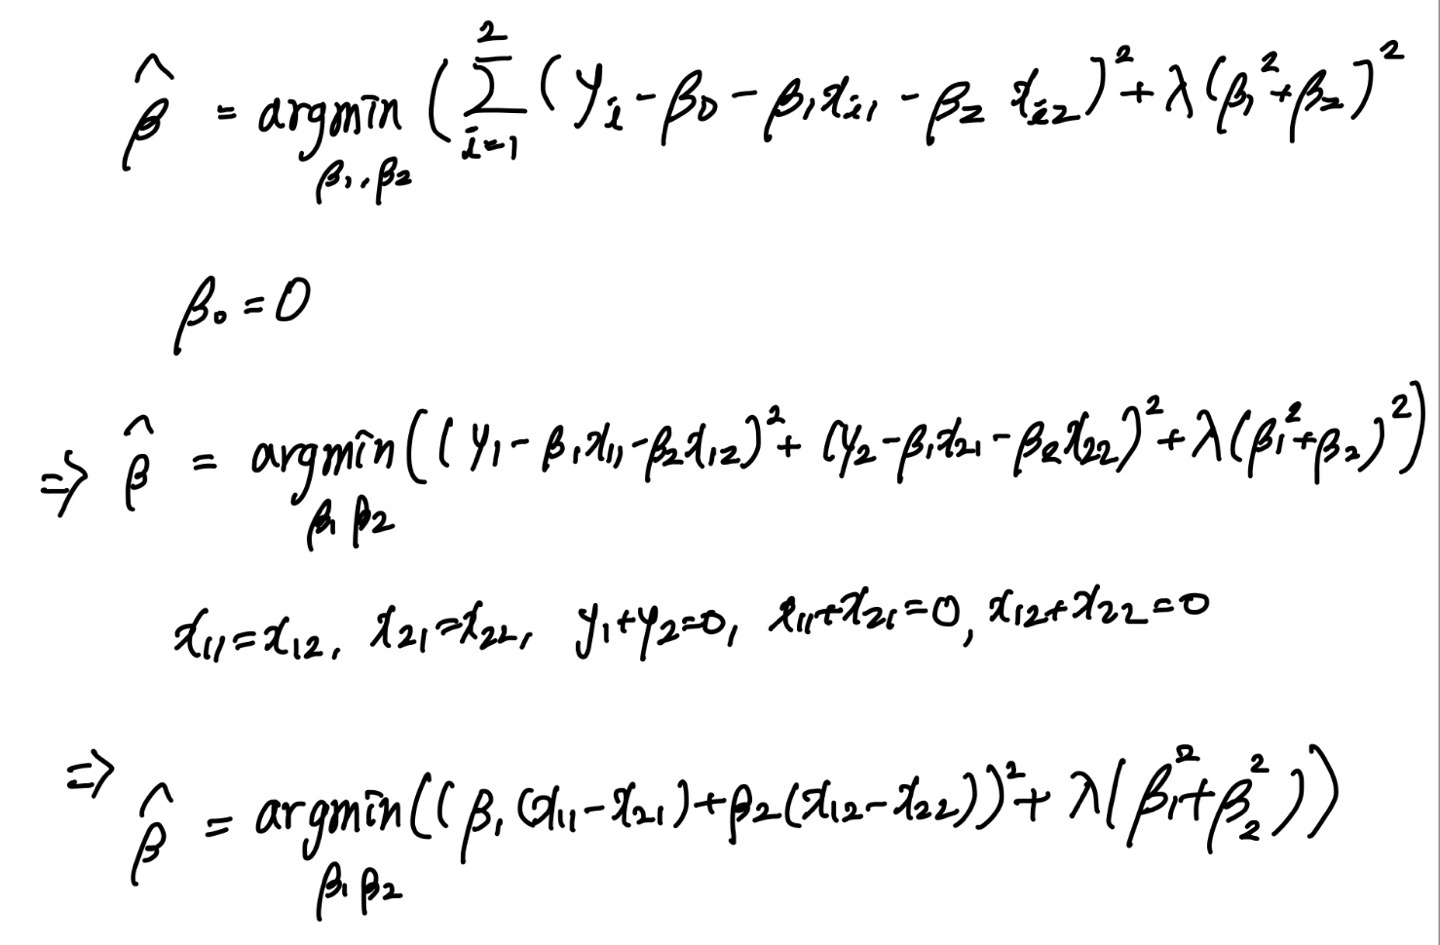 β̂ = argmin_{β₁,β₂} (∑_{i=1}^{2} (yᵢ - β₀ - β₁xᵢ₁ - β₂ xᵢ₂)² + λ(β₁² + β₂)²
β₀ = 0
⇒ β̂ = argmin_{β₁ β₂} ((y₁ - β₁x₁₁ - β₂x₁₂)² + (y₂ - β₁x₂₁ - β₂x₂₂)² + λ(β₁² + β₂)²)
x₁₁ = x₁₂, x₂₁ = x₂₂, y₁ + y₂ = 0, x₁₁ + x₂₁ = 0, x₁₂ + x₂₂ = 0
⇒ β̂ = argmin_{β₁ β₂} ((β₁(x₁₁ - x₂₁) + β₂(x₁₂ - x₂₂))² + λ(β₁² + β₂²))